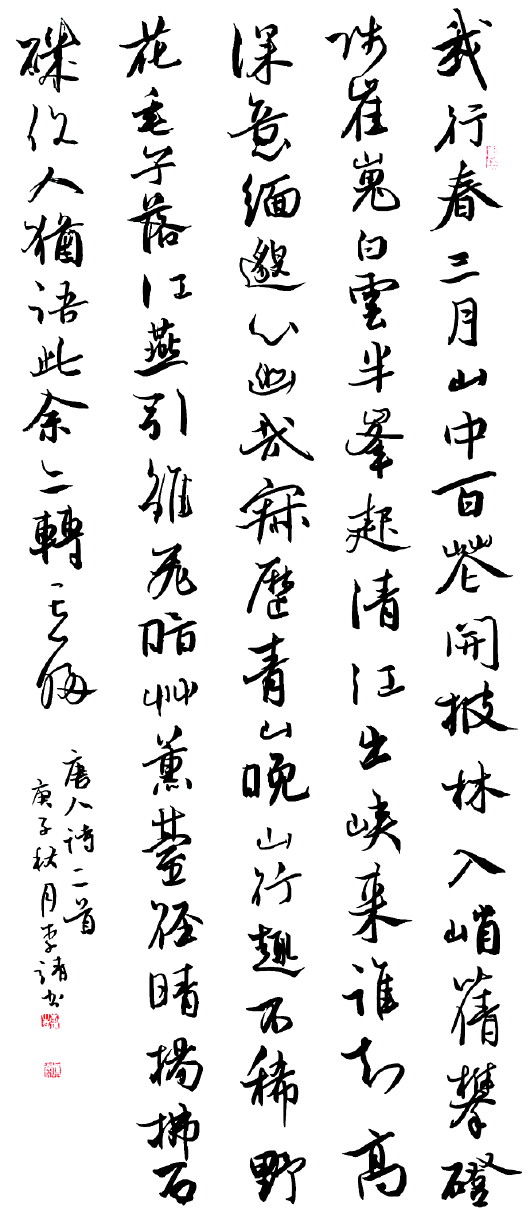 我行春三月山中百花開披林入峭蒨攀磴
陟崔嵬白雲半峯起清江出峽來誰知高
深意緬邈心幽哉寂歷青山晚山行趣不稀野
花子落江燕引雛飛暗艸薰薹徑晴楊拂石
磯俗人猶語此余亦轉忘歸
唐人詩二首
庚子秋月李靖書